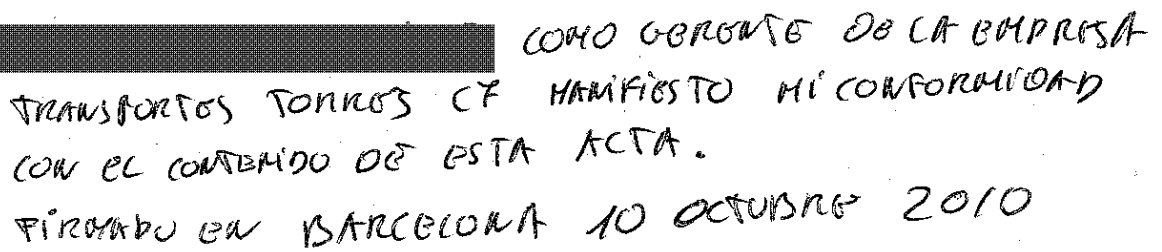 COMO GERENTE DE LA EMPRESA
TRANSPORTES TORRES C7 MANIFIESTO MI CONFORMIDAD
CON EL CONTENIDO DE ESTA ACTA.
FIRMADO EN BARCELONA 10 OCTUBRE 2010